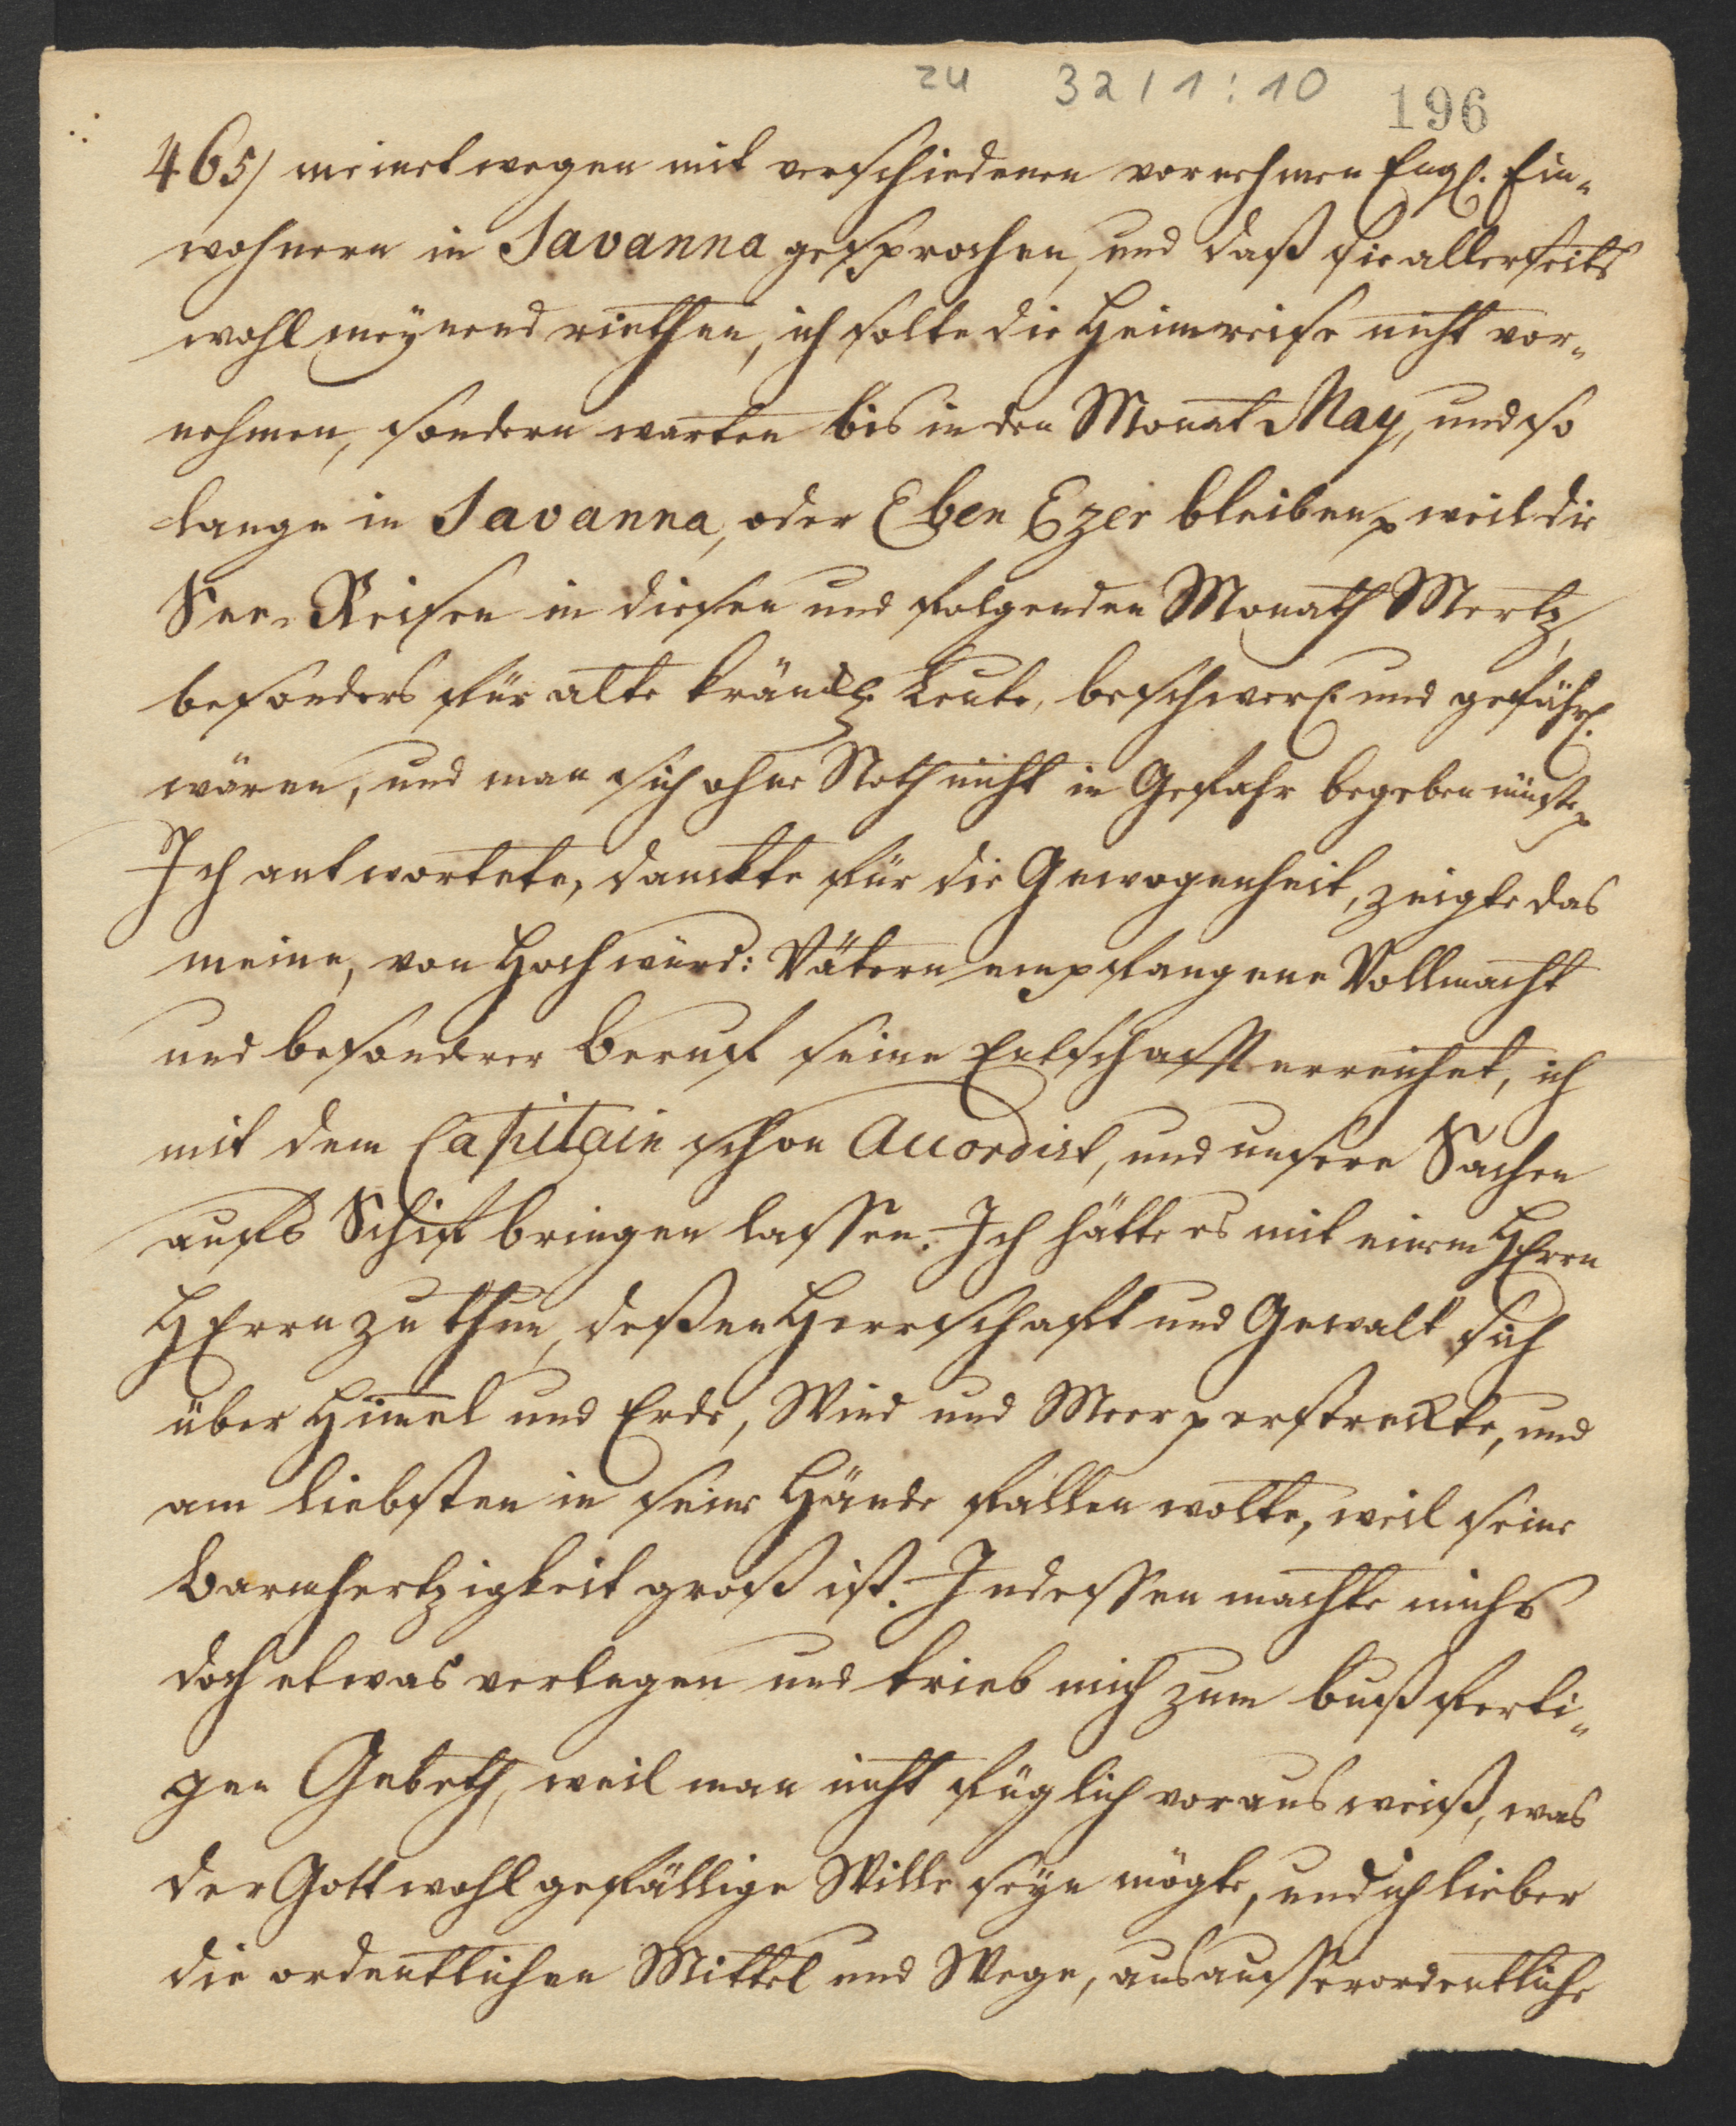 zu 32/1:10
196
465/ meinetwegen mit verschiedenen vornehmen Engl. Ein-
wohnern in Savanna gesprochen, und daß sie allerseits
wohlmeynend riethen, ich solte die Heimreise nicht vor-
nehmen, sondern warten bis in den Monat May, und so
lange in Savanna, oder Eben Ezer bleiben p weil die
See-Reisen in diesen und folgenden Monath Mertz,
besonders für alte kränckl. Leute, beschwerl. und gefährl.
wären, und man sich ohne Noth nicht in Gefahr begeben müste p
Ich antwortete, danckte für die Gewogenheit, zeigte das
meine, von Hochwürd: Vätern empfangene Vollmacht
und besonderer Beruf seine Endschafft erreichet, ich
mit dem Capitain schon accordirt, und unsere Sachen
aufs Schif bringen lassen. Ich hätte es mit einem HErrn
HErrn zu thun, deßen Herrschaft und Gewalt sich
über Himel und Erde, Wind und Meer p erstreckte, und
am liebsten in seine Hände fallen wolte, weil seine
Barmhertzigkeit groß ist. Indessen machte michs
doch etwas verlegen und trieb mich zum bußferti-
gen Gebeth, weil man nicht füglich voraus weiß, was
der Gott wohlgefällige Wille seyn mögte, und ich lieber
die ordentlichen Mittel und Wege, als ausserordentliche